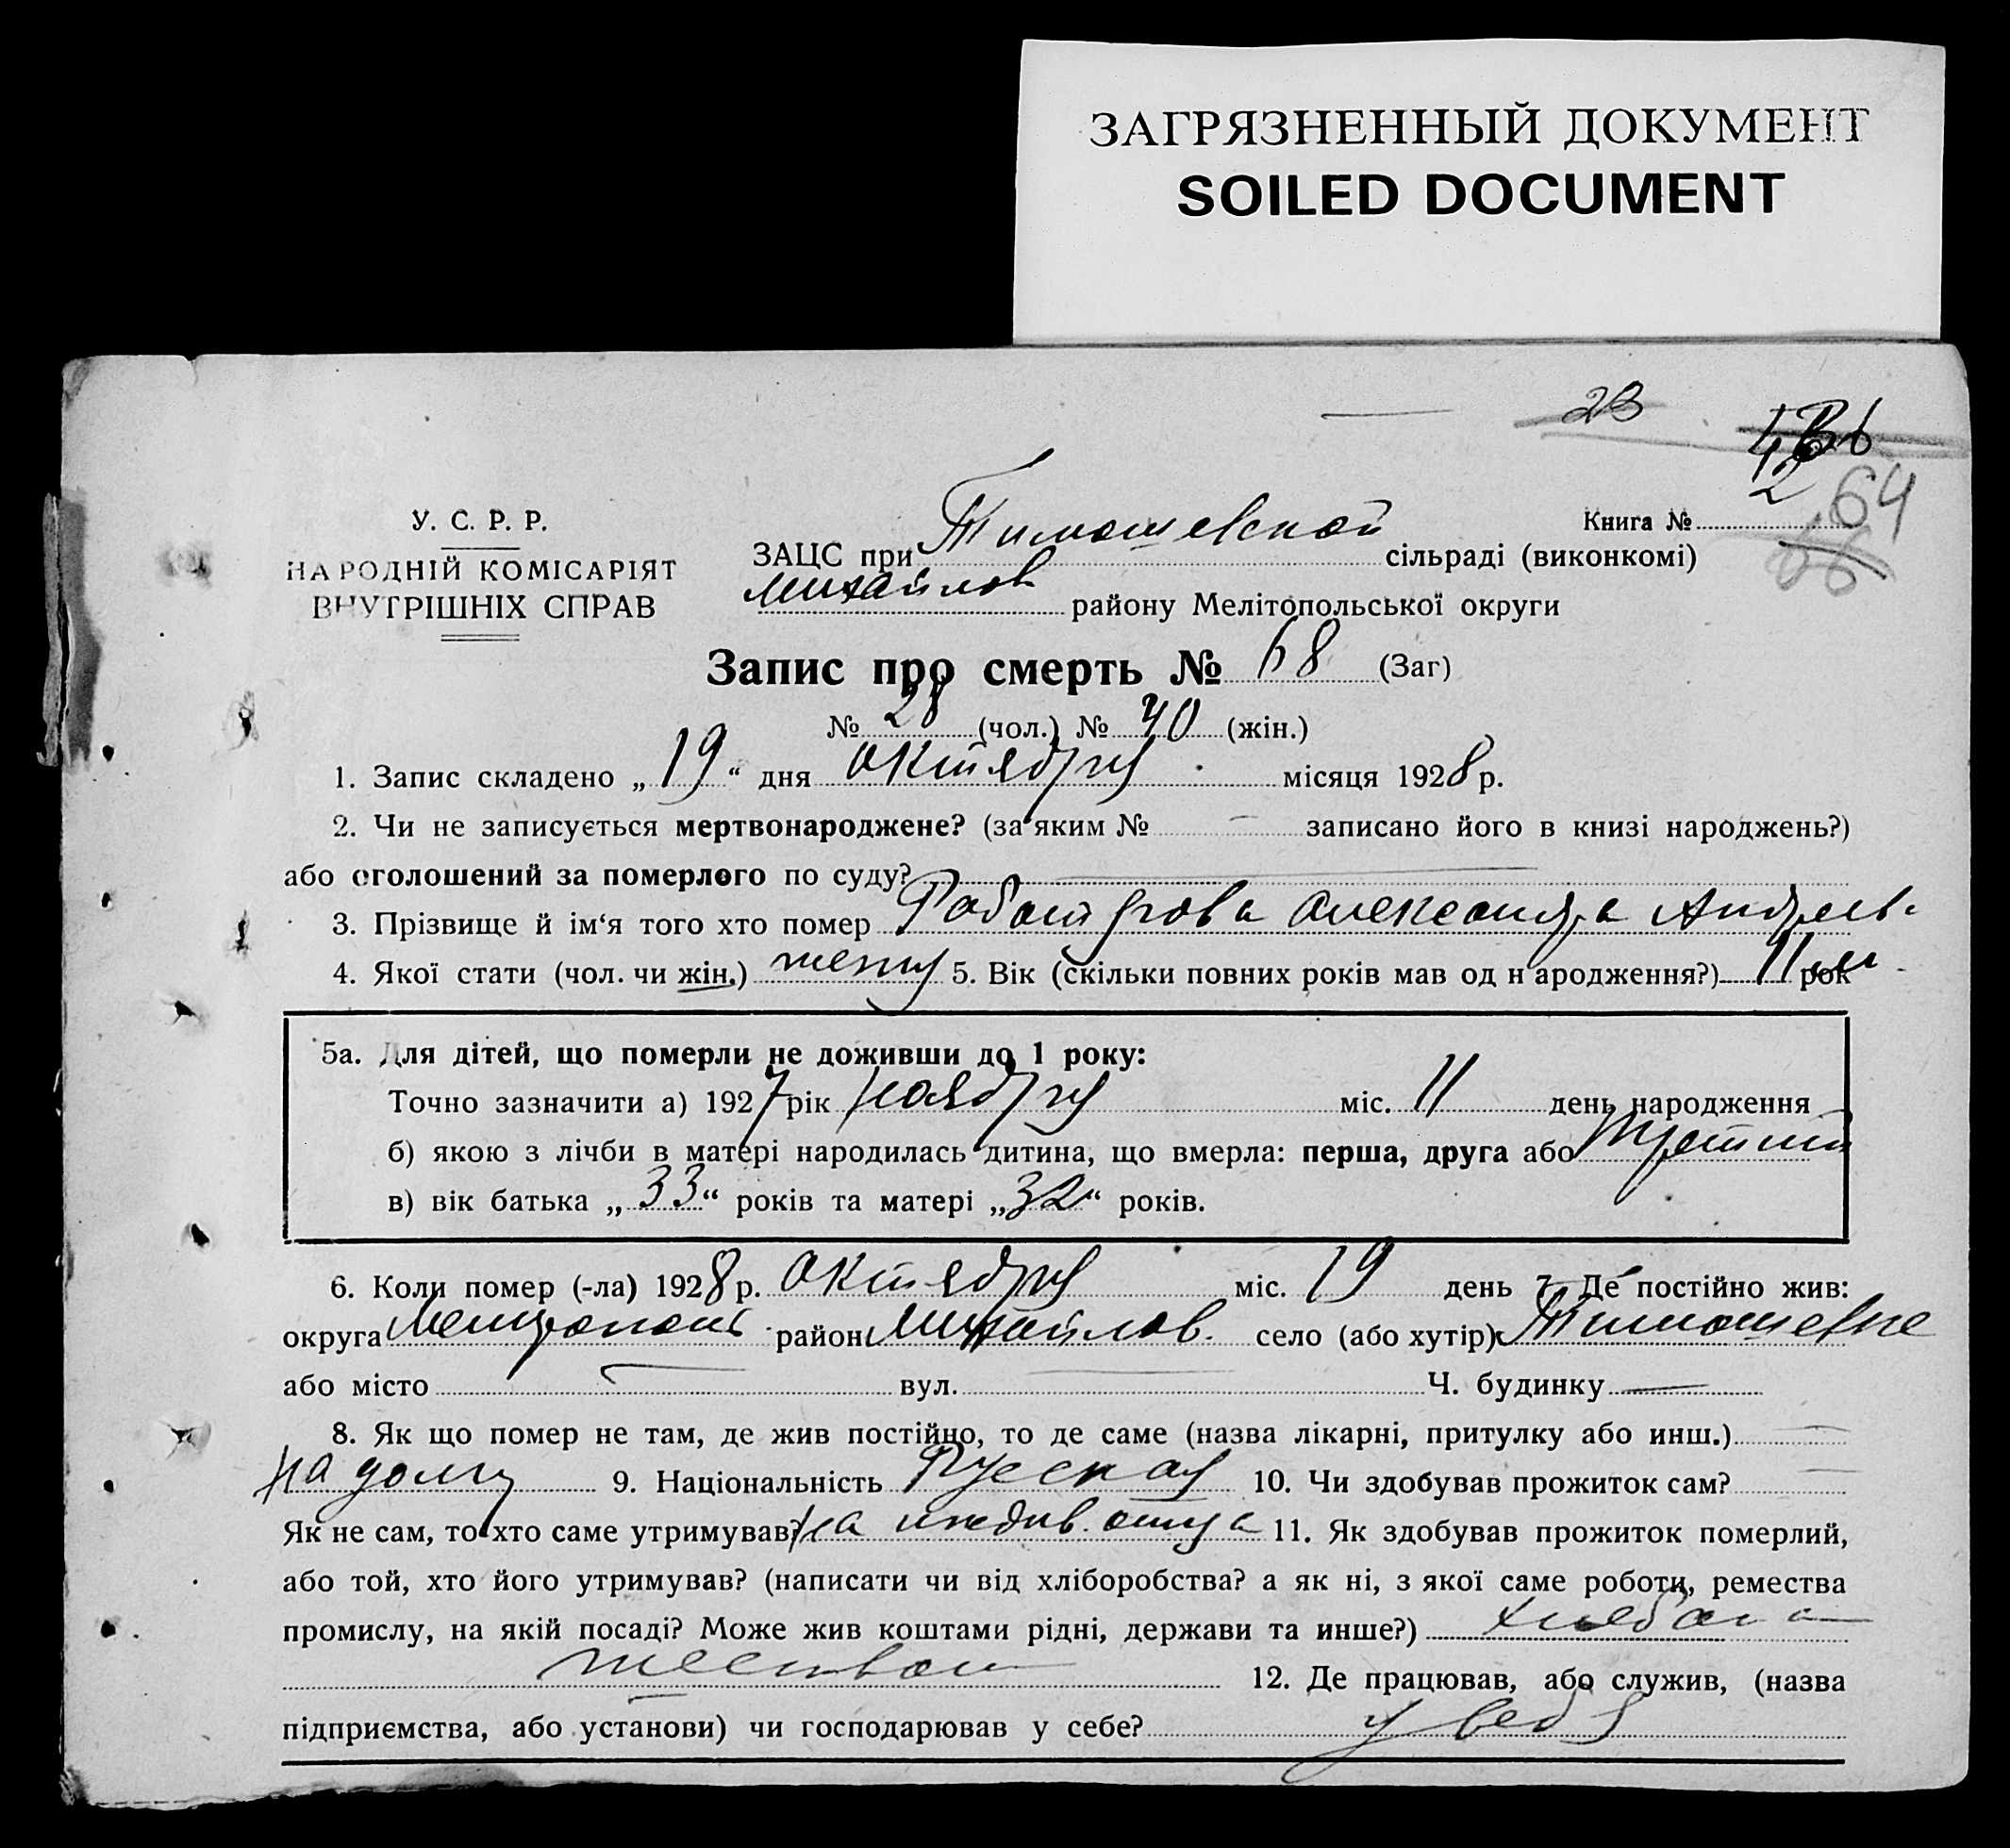 ЗАГРЯЗНЕННЫЙ ДОКУМЕНТ
SOILED DOCUMENT
23
64
У. С. Р. Р.
НАРОДНІЙ КОМІСАРІЯТ
ВНУТРІШНІХ СПРАВ
Книга №
ЗАЦС при Тимошевской сільраді (виконкомі)
Михайлов району Мелітопольської округи
Запис про смерть № 68 (Заг)
№ 28 (чол.) № 40 (жін.)
1. Запис складено „19“ дня октября місяця 1928 р.
2. Чи не записується мертвонароджене? (за яким № — записано його в книзі народжень?)
або оголошений за померлого по суду? —
3. Прізвище й ім‘я того хто помер Александра Андреев.
4. Якої стати (чол. чи жін.) 5. Вік (скільки повних років мав од народження?) 11 м рок
5а. Для дітей, що померли не доживши до 1 року:
Точно зазначити а) 1927 рік ноября міс. 11 день народження
б) якою з лічби в матері народилась дитина, що вмерла: перша, друга або третий
в) вік батька „33“ років та матері „32“ років.
6. Коли помер (-ла) 1928 р. октября міс. 19 день 7. Де постійно жив:
округа район Михайлов. село (або хутір) Тимошевке
або місто — вул. — Ч. будинку —
8. Як що помер не там, де жив постійно, то де саме (назва лікарні, притулку або инш.) —
на дому 9. Національність Руская 10. Чи здобував прожиток сам? —
Як не сам, то хто саме утримував? на иждив. отца 11. Як здобував прожиток померлий,
або той, хто його утримував? (написати чи від хліборобства? а як ні, з якої саме роботи, ремества
промислу, на якій посаді? Може жив коштами рідні, держави та инше?) хлебопа
шеством 12. Де працював, або служив, (назва
підприємства, або установи) чи господарював у себе? у себя